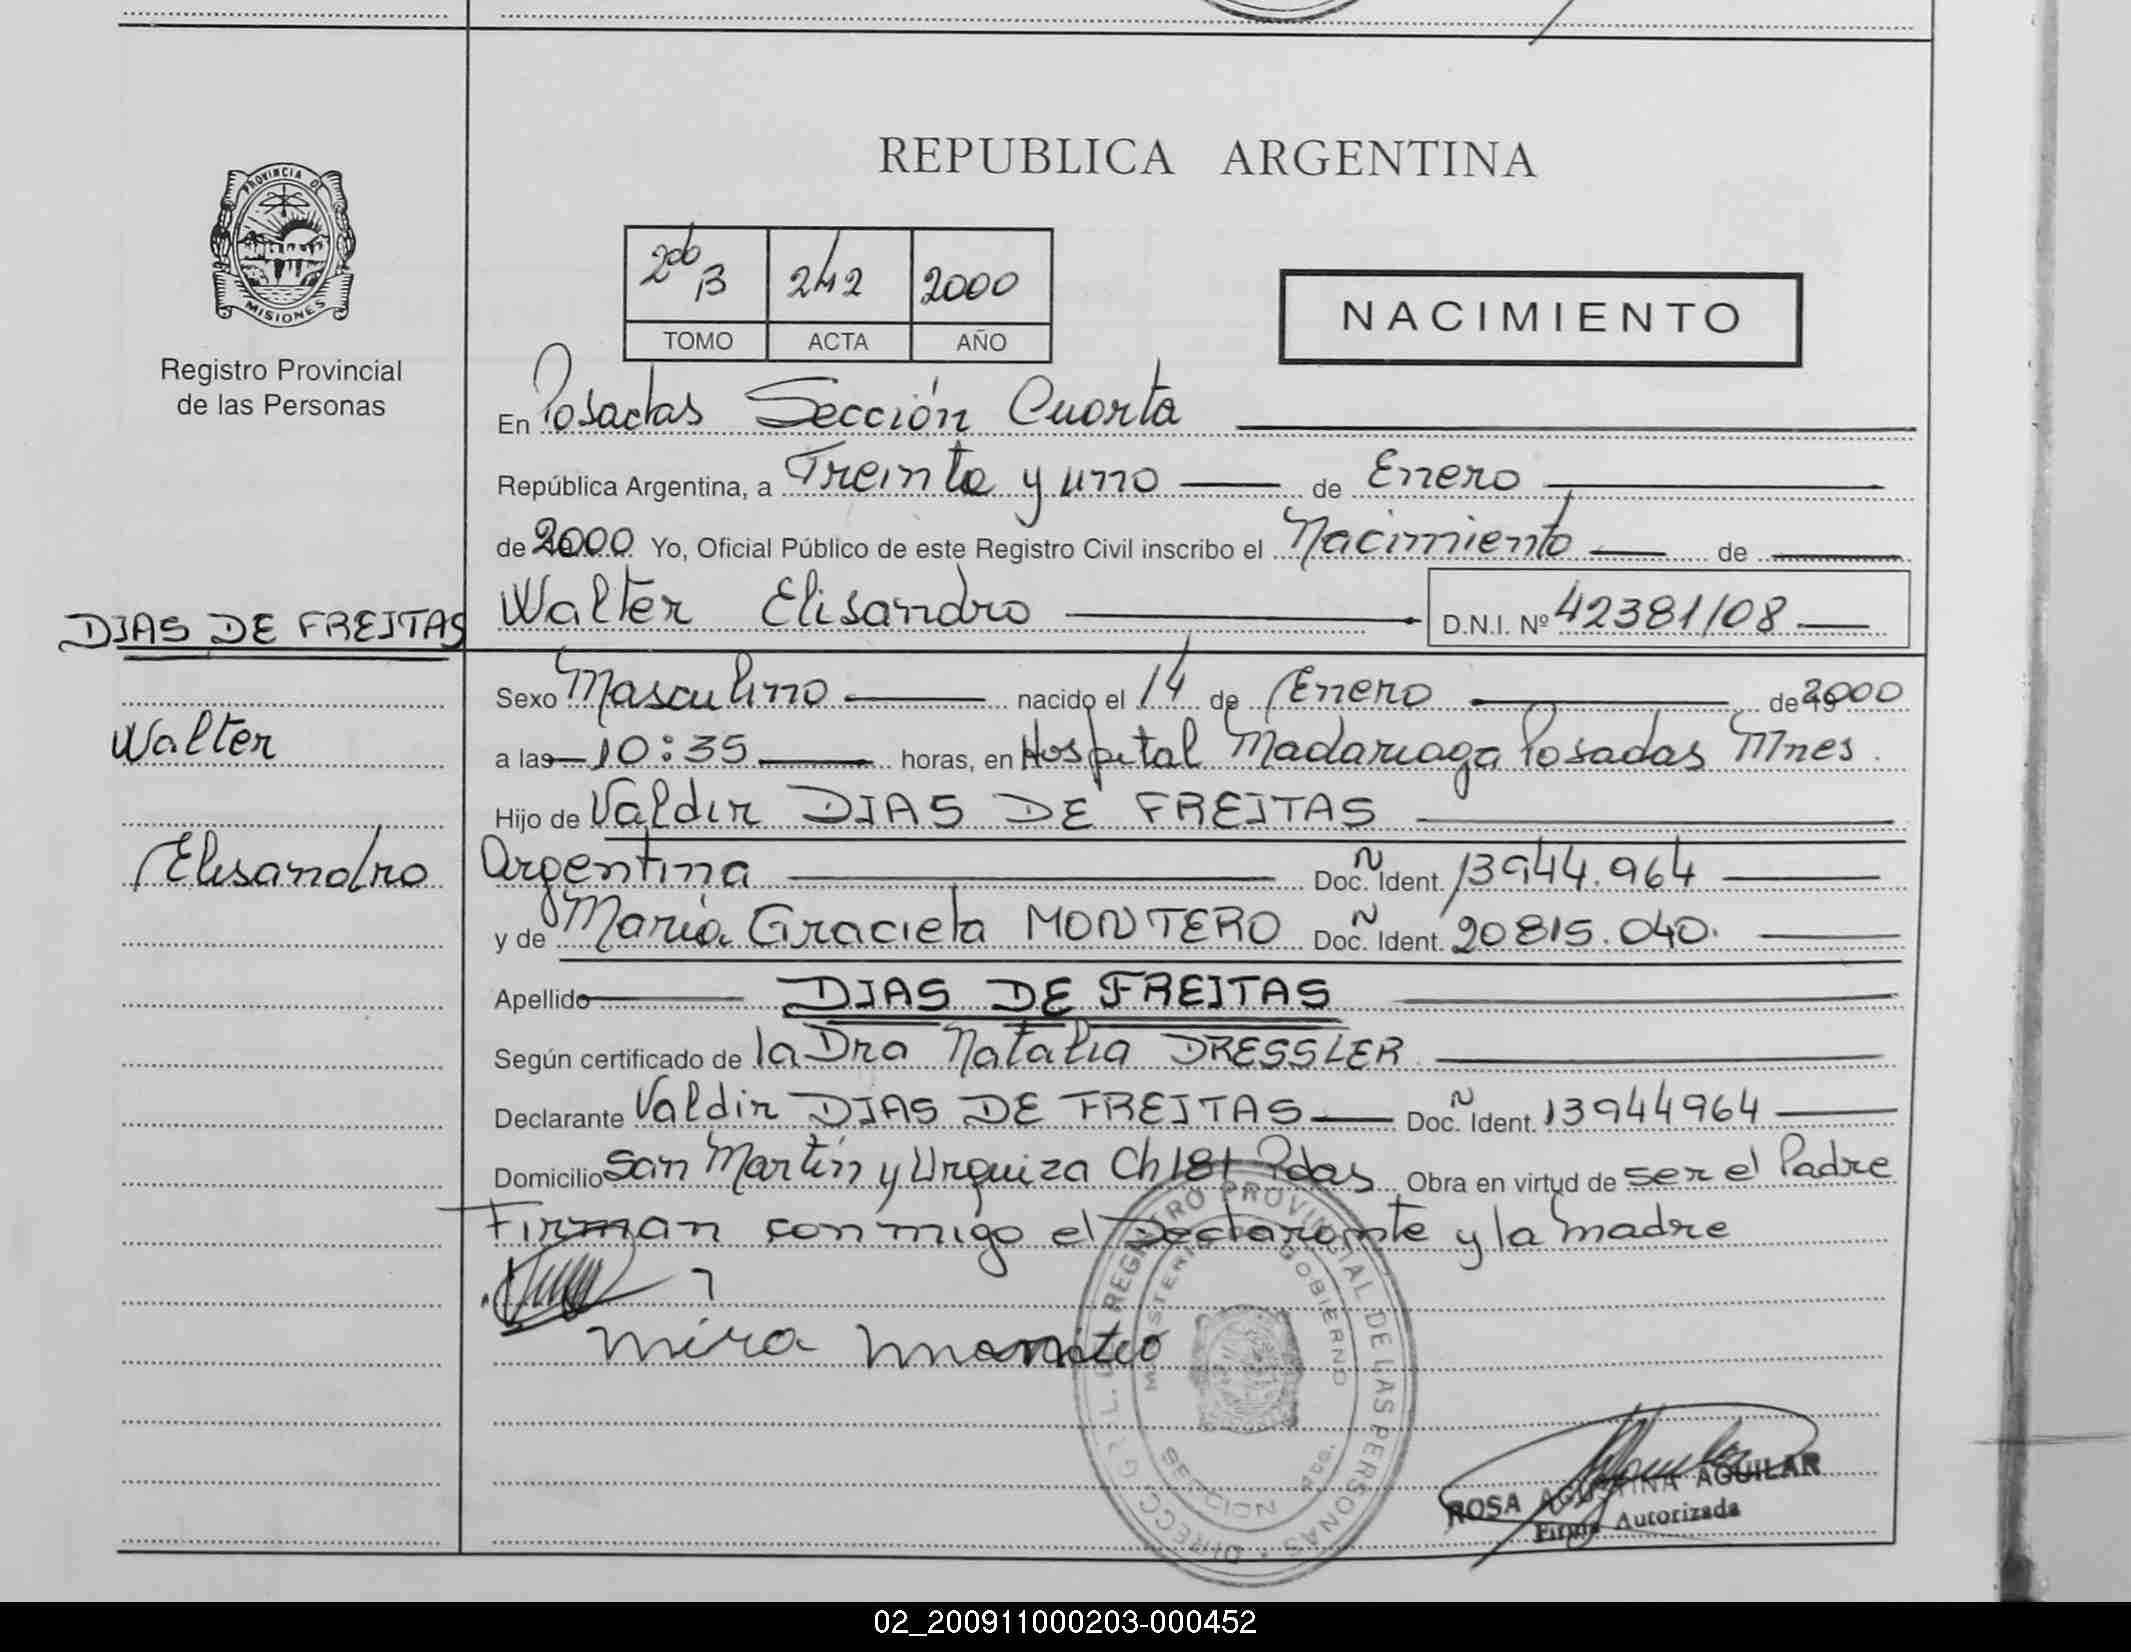 REPUBLICA ARGENTINA
PROVINCIA DE
MISIONES
Registro Provincial
de las Personas
2do B 242 2000
TOMO ACTA AÑO
NACIMIENTO
En Posadas Sección Cuarta
República Argentina, a Treinta y uno de Enero
de 2000 Yo, Oficial Público de este Registro Civil inscribo el Nacimiento de
DIAS DE FREITAS Walter Elisandro D.N.I. Nº 42381108
Sexo Masculino nacido el 14 de Enero de 2000
Walter
a las 10:35 horas, en Hospital Madariaga Posadas Mnes.
Hijo de Valdir DIAS DE FREITAS
Elisandro
Argentina Doc. Ñ Ident. 13944.964
y de Maria Graciela MONTERO Doc. Ñ Ident. 20815.040.
Apellido DIAS DE FREITAS
Según certificado de la Dra Natalia DRESSLER
Declarante Valdir DIAS DE FREITAS Doc. Ñ Ident. 13944964
Domicilio San Martín y Urquiza Ch 181 Pdas Obra en virtud de ser el Padre
Firman conmigo el Declarante y la madre
DIRECC. GRAL. REGISTRO PROVINCIAL DE LAS PERSONAS
MINISTERIO GOBIERNO
SECCION 4ta.
ROSA AGUSTINA AGUILAR
Firma Autorizada
02_200911000203-000452